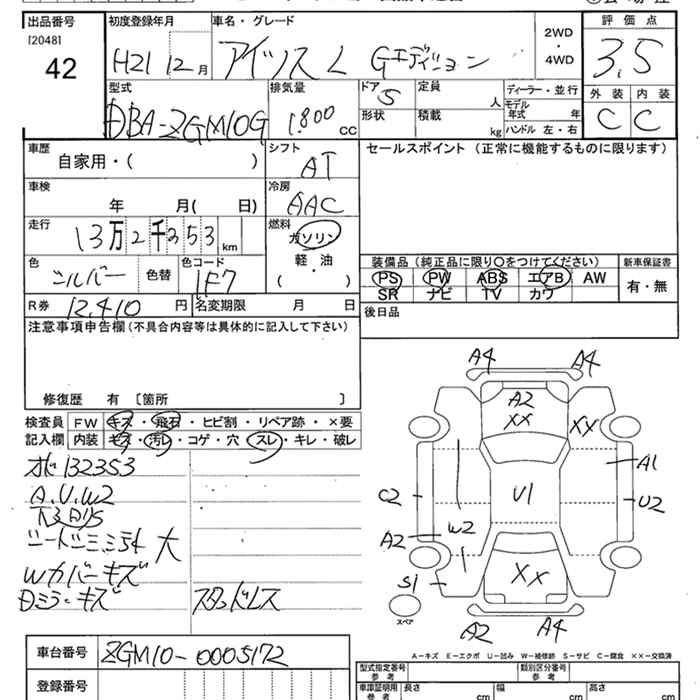 出品番号 初度登録年月 車名・グレード 2WD・4WD 評価点
[2048]
42 H21 12月 アイシス L Gエディション 3.5
外装 内装
C C
型式 排気量 ドア 定員 人 ディーラー・並行
DBA-ZGM10G 1.800 CC 5 形状 積載 kg モデル年式 年
ハンドル 左・右
車歴 シフト セールスポイント (正常に機能するものに限ります)
自家用・( ) AT
車検 冷房
年 月( 日) AAC
走行 燃料
13万2千353km ガソリン
軽・油
( )
色 色替 色コード
シルバー 1F7
装備品 (純正品に限り○をつけてください) 新車保証書
PS PW ABS エアB AW 有・無
SR ナビ TV カワ
R券 12,410円 名変期限 月 日
後日品
注意事項申告欄(不具合内容等は具体的に記入して下さい)
修復歴 有 [箇所 ]
検査員 FW キズ・飛石・ヒビ割・リペア跡・×要
記入欄 内装 キズ・汚レ・コゲ・穴・スレ・キレ・破レ
132353
A.U.W2
大
Wカバーキズ
Dミラーキズ スタッドレス
A4 A4
A2
XX XX
A1
C2 U1 U2
W2
A2
S1 XX
スペア
A2 A4
A-キズ E-エクボ U-凹み W-補修跡 S-サビ C-腐食 XX-交換済
車台番号 ZGM10-0005172
登録番号
型式指定番号 参考 類別区分番号 参考
車庫証明用 参考 長さ cm 幅 cm 高さ cm